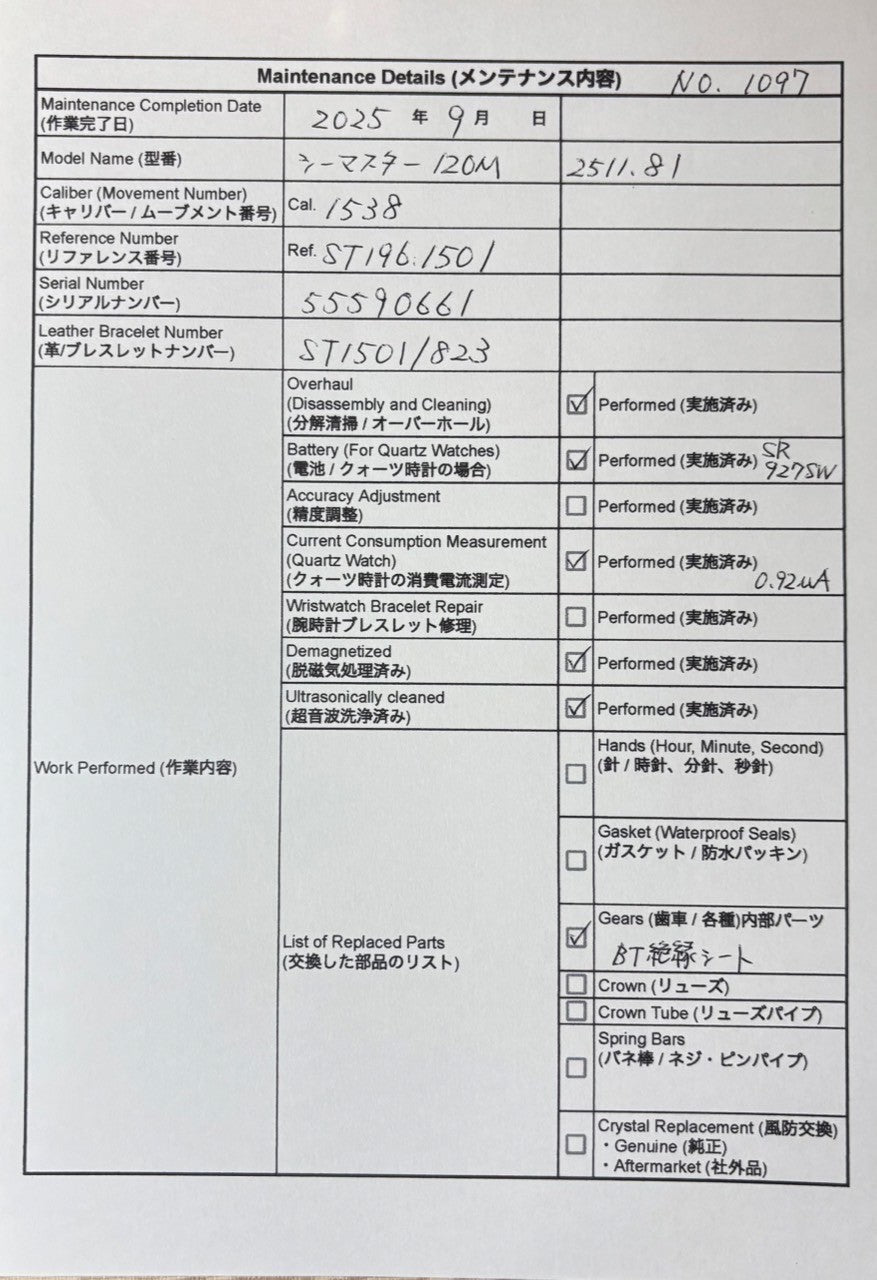 Maintenance Details (メンテナンス内容) NO. 1097
Maintenance Completion Date
(作業完了日)
2025 年 9 月 日
Model Name (型番)
シーマスター 120M
2511.81
Caliber (Movement Number)
(キャリバー / ムーブメント番号)
Cal. 1538
Reference Number
(リファレンス番号)
Ref. ST196.1501
Serial Number
(シリアルナンバー)
55590661
Leather Bracelet Number
(革/ブレスレットナンバー)
ST1501/823
Work Performed (作業内容)
Overhaul
(Disassembly and Cleaning)
(分解清掃 / オーバーホール)
☑ Performed (実施済み)
Battery (For Quartz Watches)
(電池 / クォーツ時計の場合)
☑ Performed (実施済み) SR
927SW
Accuracy Adjustment
(精度調整)
☐ Performed (実施済み)
Current Consumption Measurement
(Quartz Watch)
(クォーツ時計の消費電流測定)
☑ Performed (実施済み)
0.92uA
Wristwatch Bracelet Repair
(腕時計ブレスレット修理)
☐ Performed (実施済み)
Demagnetized
(脱磁気処理済み)
☑ Performed (実施済み)
Ultrasonically cleaned
(超音波洗浄済み)
☑ Performed (実施済み)
List of Replaced Parts
(交換した部品のリスト)
☐ Hands (Hour, Minute, Second)
(針 / 時針、分針、秒針)
☐ Gasket (Waterproof Seals)
(ガスケット / 防水パッキン)
☑ Gears (歯車 / 各種)内部パーツ
BT絶縁シート
☐ Crown (リューズ)
☐ Crown Tube (リューズパイプ)
☐ Spring Bars
(バネ棒 / ネジ・ピンパイプ)
☐ Crystal Replacement (風防交換)
・Genuine (純正)
・Aftermarket (社外品)